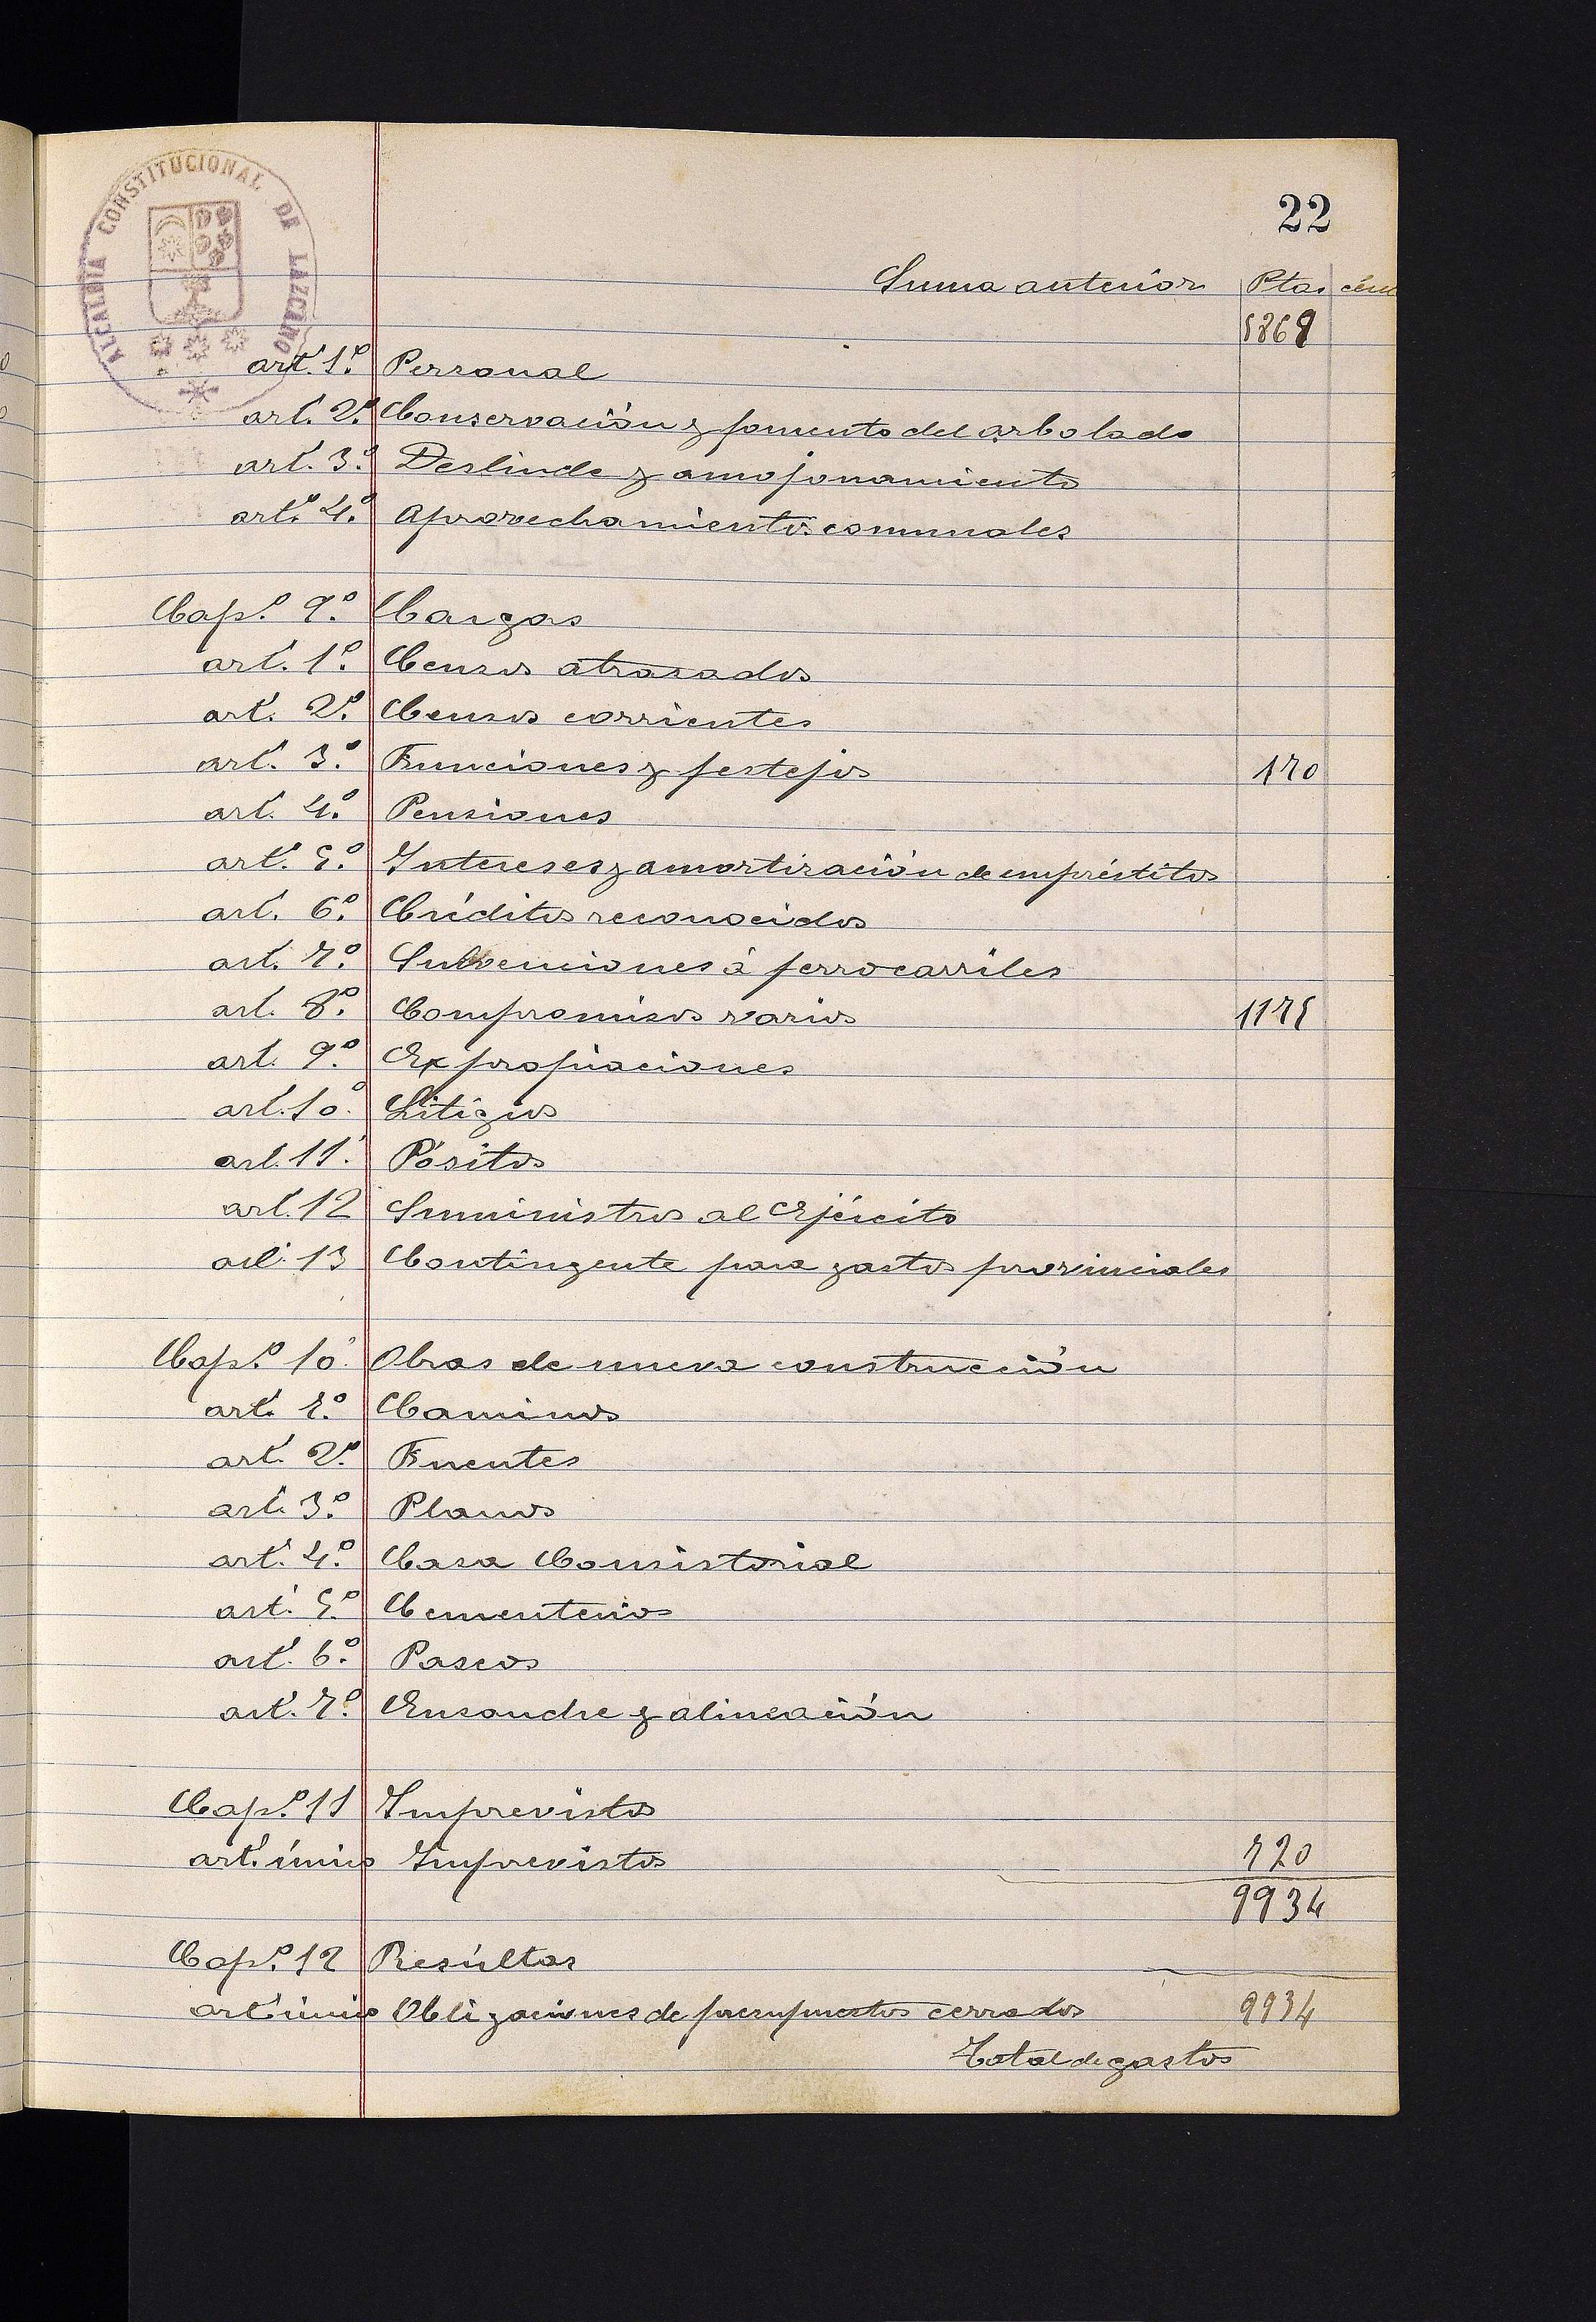 ALCALDIA CONSTITUCIONAL DE LAZCANO
22
Suma anterior Ptas cént
5869
art. 1.º Personal
art. 2.º Conservación y fomento del arbolado
art. 3.º Deslinde y amojonamiento
art. 4.º Aprovechamientos comunales
Cap.º 9.º Cargas
art. 1.º Censos atrasados
art. 2.º Censos corrientes
art. 3.º Funciones y festejos 170
art. 4.º Pensiones
art. 5.º Intereses y amortización de empréstitos
art. 6.º Créditos reconocidos
art. 7.º Subvenciones á ferrocarriles
art. 8.º Compromisos varios 1175
art. 9.º Expropiaciones
art. 10.º Litigios
art. 11. Pósitos
art. 12 Suministros al Ejército
art. 13 Contingente para gastos provinciales
Cap.º 10. Obras de nueva construcción
art. 1.º Caminos
art. 2.º Fuentes
art. 3.º Planos
art. 4.º Casa Consistorial
art. 5.º Cementerios
art. 6.º Paseos
art. 7.º Ensanche y alineación
Cap.º 11 Imprevistos
art. único Imprevistos 720
9934
Cap.º 12 Resúltas
art. único Obligaciones de presupuestos cerrados 9934
Total de gastos